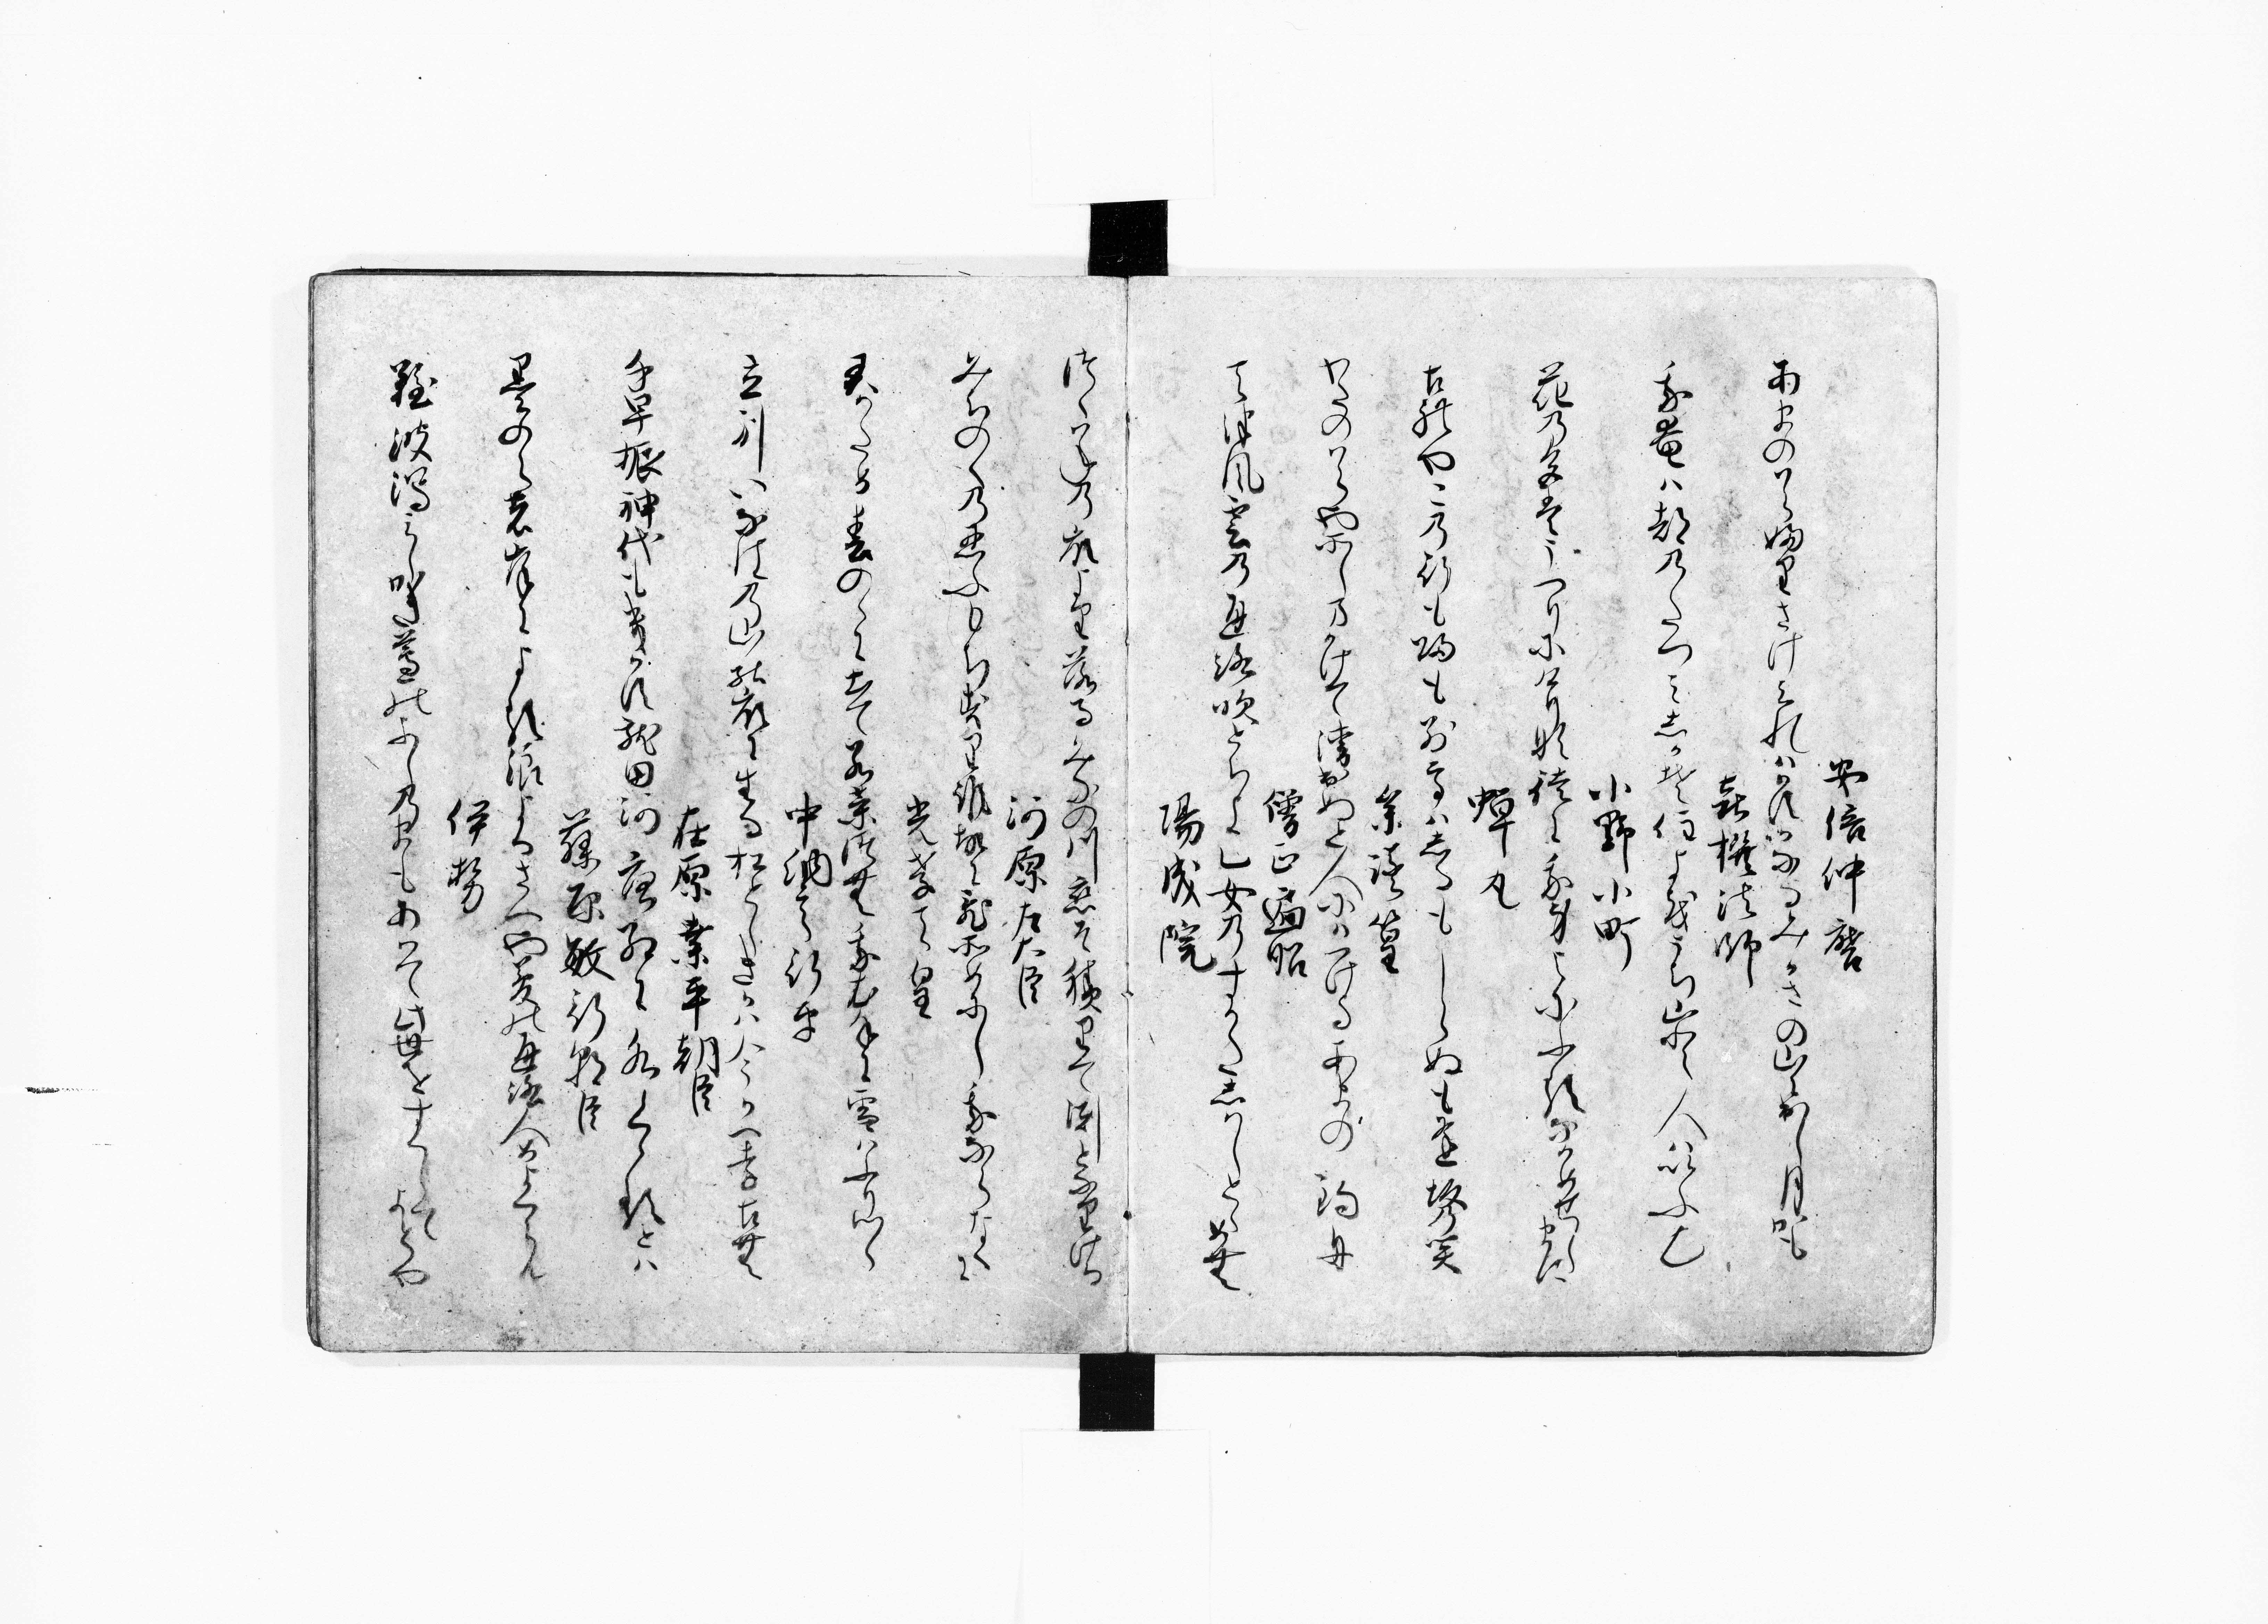 安倍仲磨
あまの原ふりさけみれはかすかなるみかさの山に出し月かも
喜撰法師
我庵は都のたつみしかそ住よをうち山と人はいふ也
小野小町
花の色はうつりにけりな徒に我身よにふるなかめせしまに
蝉丸
古れやこの行も帰も別てはしるもしらぬも逢坂の関
参議篁
わたの原やそしまかけて漕出ぬと人にはつけよあまの釣舟
僧正遍昭
天津風雲の通路吹とちよ乙女のすかたしはしとゝめむ
陽成院
つくはねの嶺より落るみなの川恋そ積りて渕となりける
河原左大臣
みちのくの忍ふもちすり誰故に乱そめにし我ならなくに
光孝天皇
君かため春のゝに出て若菜つむ我衣手に雪はふりつゝ
中納言行平
立別いなはの山の嶺に生る松としきかは今かへりこむ
在原業平朝臣
千早振神代もきかす龍田河唐紅に水くゝるとは
藤原敏行朝臣
墨のえの岸による浪よるさへや夢の通路人めよくらん
伊勢
難波潟みしかき蘆のふしのまもあはて此世をすくしてよとや